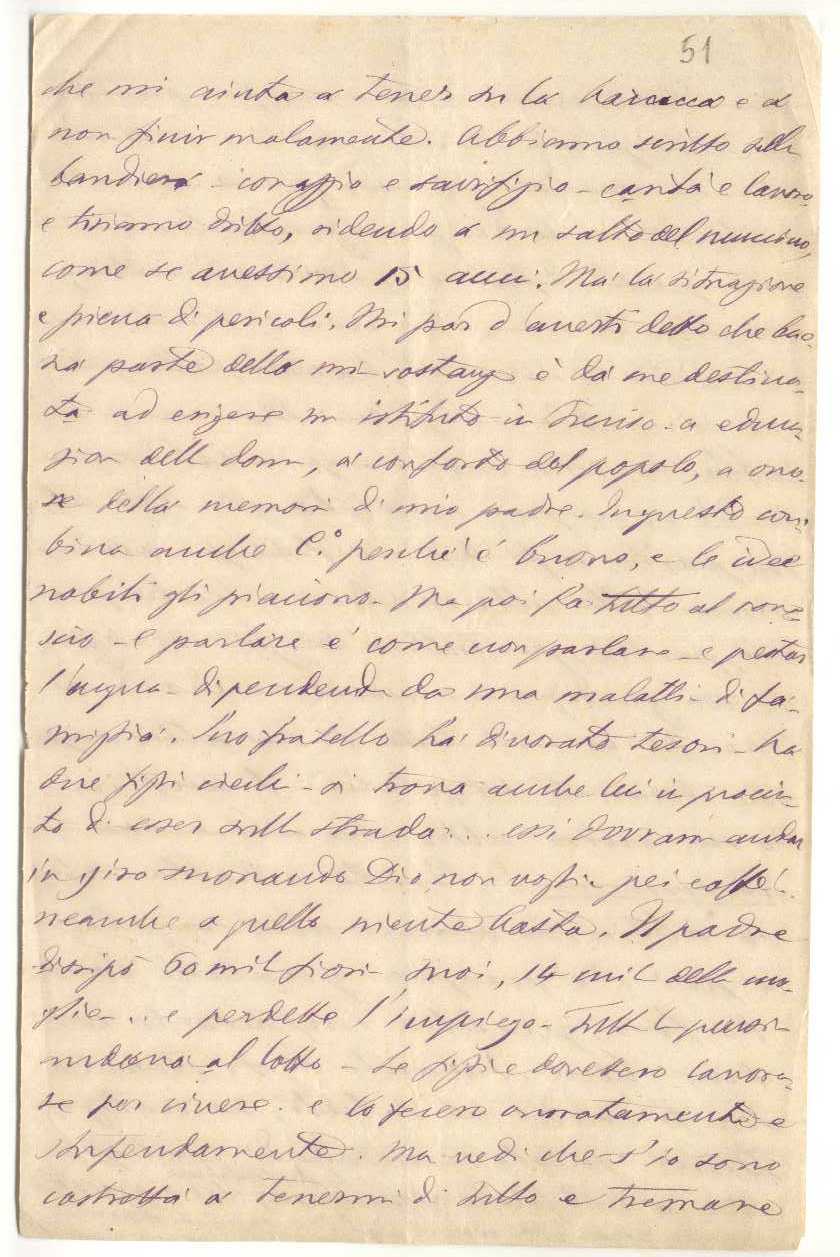 51
che mi aiuta a tener su la baracca e a
non finir malamente. Abbiamo scritto sulla
bandiera - coraggio e sacrifizio - carità e lavoro
e tiriamo dritto, ridendo a un salto del
come se avessimo 15 anni. Ma la situazione
e piena di pericoli. Mi par d'averti detto che buo-
na parte della mi sostanz è da me destina-
ta ad erigere un istituto in Treviso - a educa-
zion dell donn, a conforto del popolo, a ono-
re della memori di mio padre. In questo com-
bina anche C.º perchè è buono, e le idee
nobili gli piacciono - Ma poi fa tutto al rove-
scio - e parlare e' come non parlare - e pestar
l'acqua - dipendend da una malatti - di fa-
miglia. Suo fratello ha divorato tesori - ha
due figli ciechi - si trova anche lui in procin-
to di esser sull strada ... essi dovrann andar
in giro suonando Dio non voglia pei caffè!.
neanche a quello niente basta. Il padre
dissipò 60 mil fiori suoi, 14 mil dell mo-
glie ... e perdette l'impiego - Tutt
andava al lotto - Le figlie dovettero lavora-
re per vivere. e lo fecero onoratamente e
stupendamente. Ma vedi che s'io sono
costretta a tenermi di sotto e tremare